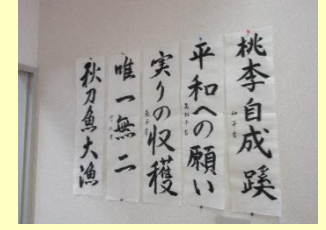 桃李自成蹊
平和への願い
実りの収穫
唯一無二
秋刀魚大漁